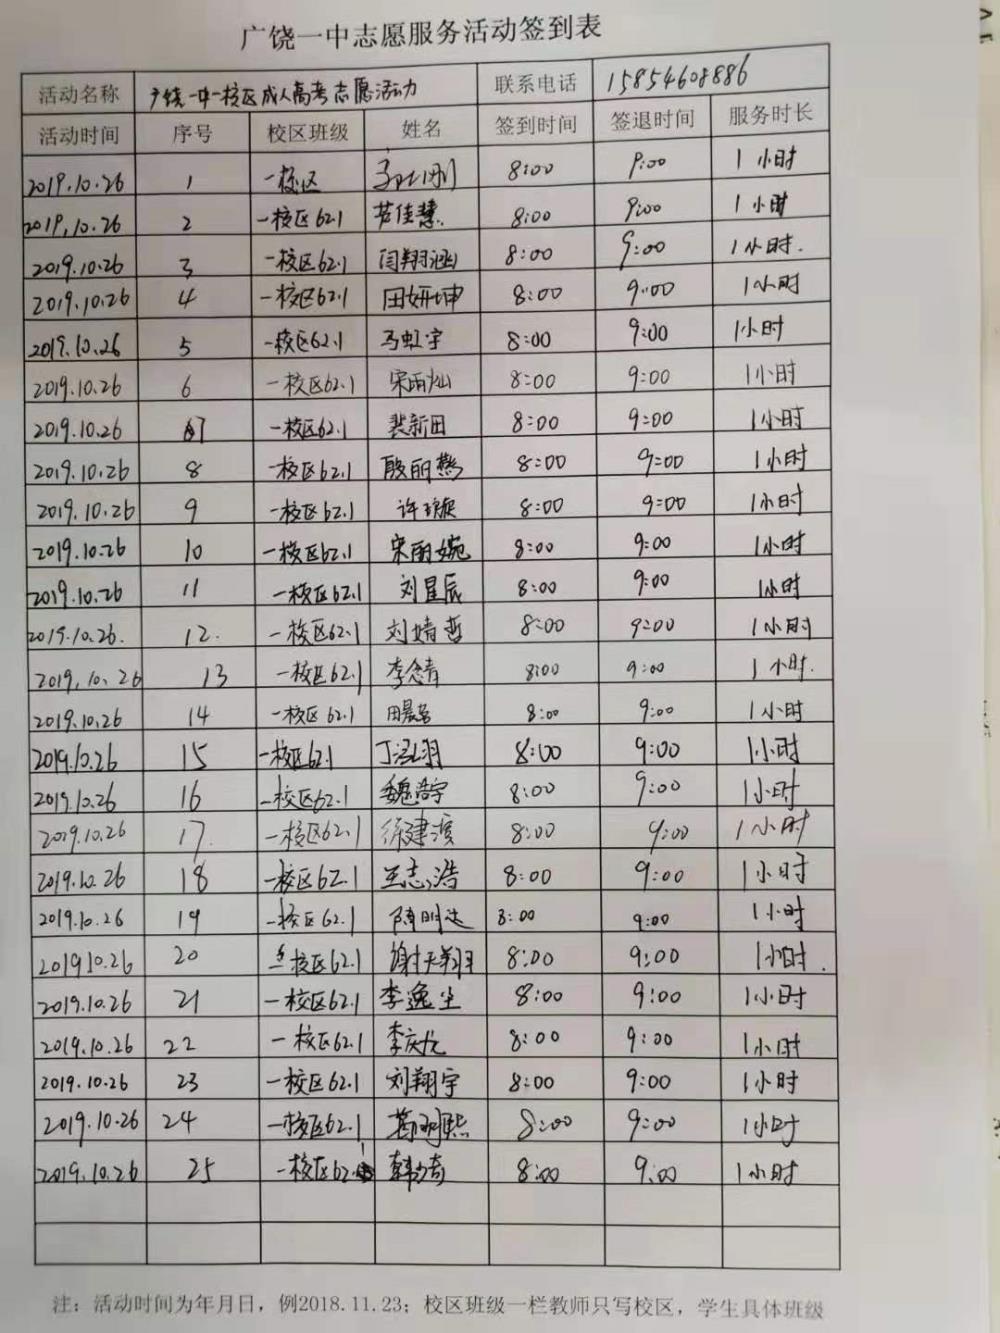 广饶一中志愿服务活动签到表
活动名称 广饶一中一校区成人高考志愿活动 联系电话 15854608886
活动时间 序号 校区班级 姓名 签到时间 签退时间 服务时长
2019.10.26 1 一校区 8:00 9:00 1小时
2019.10.26 2 一校区62.1 芦佳慧 8:00 9:00 1小时
2019.10.26 3 一校区62.1 闫翔涵 8:00 9:00 1小时.
2019.10.26 4 一校区62.1 田妍坤 8:00 9:00 1小时
2019.10.26 5 一校区62.1 马虹宇 8:00 9:00 1小时
2019.10.26 6 一校区62.1 宋雨灿 8:00 9:00 1小时
2019.10.26 7 一校区62.1 裴新田 8:00 9:00 1小时
2019.10.26 8 一校区62.1 殷丽燕 8:00 9:00 1小时
2019.10.26 9 一校区62.1 许璇 8:00 9:00 1小时
2019.10.26 10 一校区62.1 宋丽婉 8:00 9:00 1小时
2019.10.26 11 一校区62.1 刘星辰 8:00 9:00 1小时
2019.10.26. 12. 一校区62.1 刘婧哲 8:00 9:00 1小时
2019.10.26 13 一校区62.1 李念青 8:00 9:00 1小时.
2019.10.26 14 一校区62.1 8:00 9:00 1小时
2019.10.26 15 一校区62.1 丁泓羽 8:00 9:00 1小时
2019.10.26 16 一校区62.1 魏浩宇 8:00 9:00 1小时
2019.10.26 17. 一校区62.1 徐建滨 8:00 9:00 1小时
2019.10.26 18 一校区62.1 王志浩 8:00 9:00 1小时
2019.10.26 19 一校区62.1 陈明达 8:00 9:00 1小时
2019.10.26 20 一校区62.1 谢天翔 8:00 9:00 1小时.
2019.10.26 21 一校区62.1 李逸生 8:00 9:00 1小时
2019.10.26 22 一校区62.1 李庆龙 8:00 9:00 1小时
2019.10.26 23 一校区62.1 刘翔宇 8:00 9:00 1小时
2019.10.26 24 一校区62.1 葛明熙 8:00 9:00 1小时
2019.10.26 25 一校区62.1 韩力奇 8:00 9:00 1小时
注：活动时间为年月日，例2018.11.23；校区班级一栏教师只写校区，学生具体班级